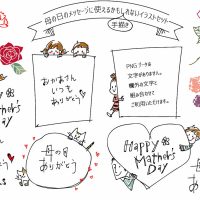 母の日のメッセージに使えるかもしれないイラストセット
手描き
おかあさん
いつも
ありがとう
PNGデータは
文字がありません。
欄外の文字と
組み合わせて
ご利用いただけます。
Happy
Mother's
Day
母の日
ありがとう
Happy
Mother's
Day